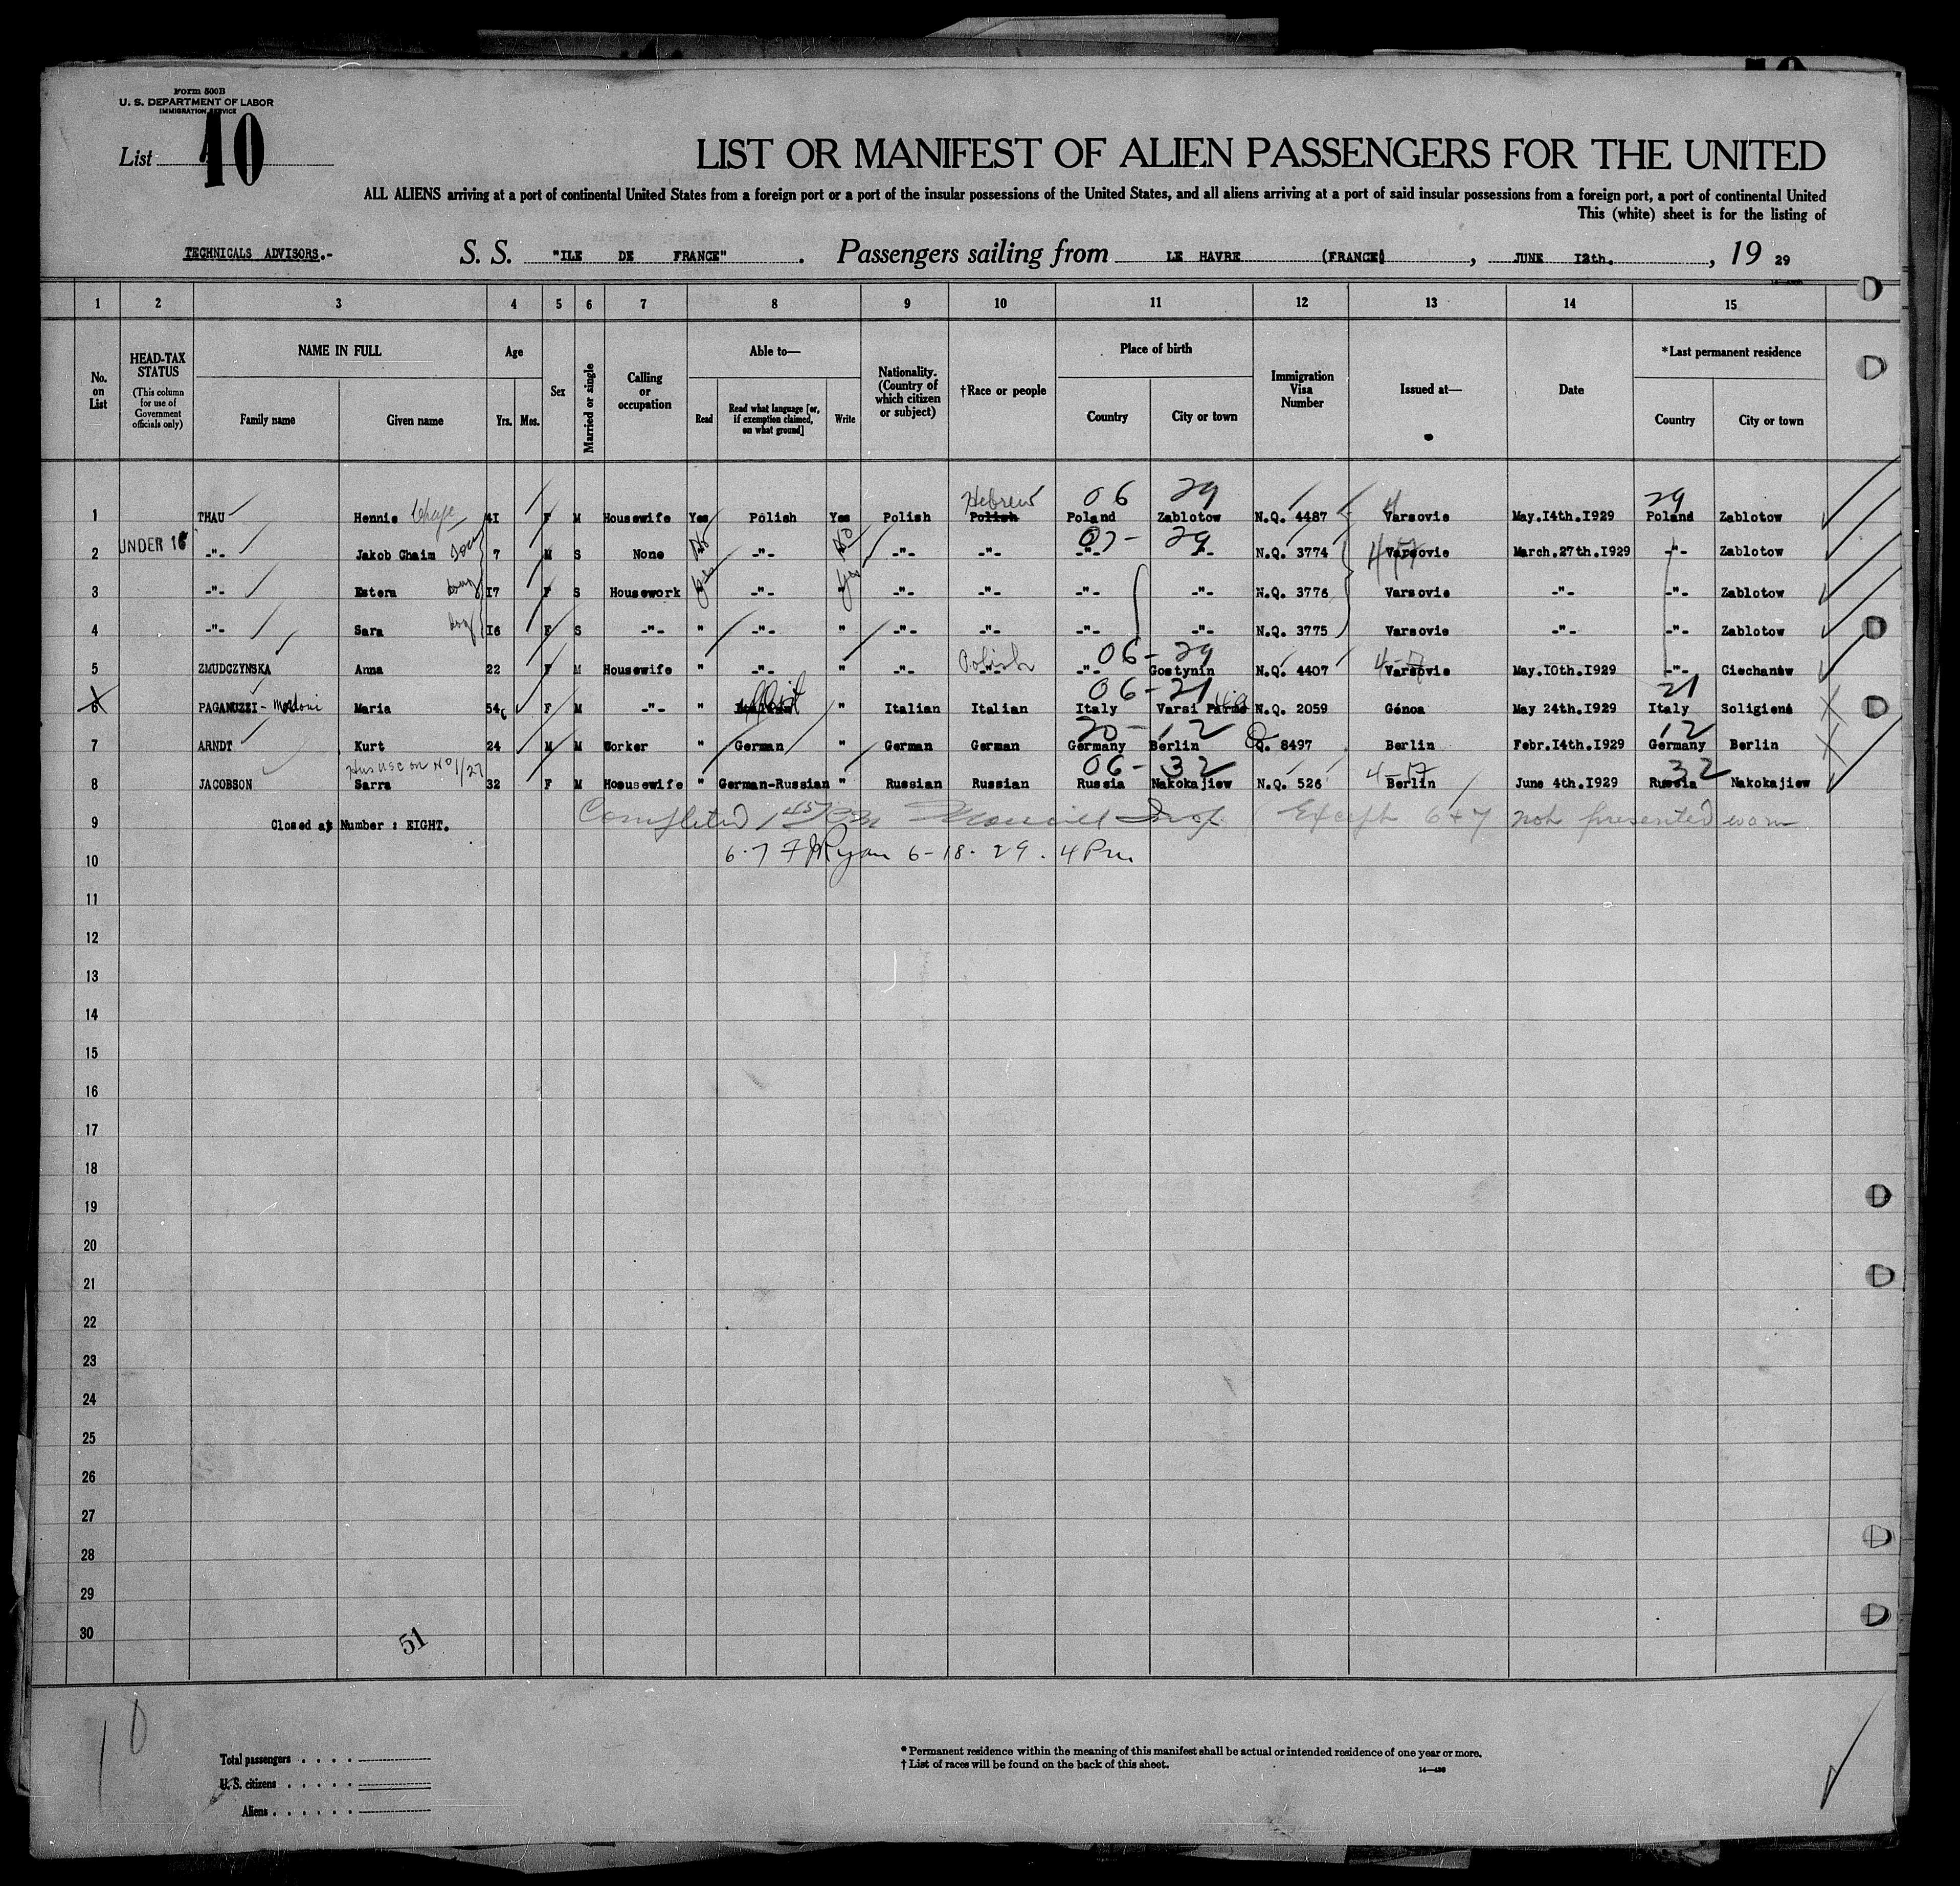 Form 500B
U. S. DEPARTMENT OF LABOR
IMMIGRATION SERVICE
List 10
LIST OR MANIFEST OF ALIEN PASSENGERS FOR THE UNITED
ALL ALIENS arriving at a port of continental United States from a foreign port or a port of the insular possessions of the United States, and all aliens arriving at a port of said insular possessions from a foreign port, a port of continental United
This (white) sheet is for the listing of
TECHNICALS ADVISORS.- S. S. "ILE DE FRANCE". Passengers sailing from LE HAVRE (FRANCE), JUNE 12th., 19 29
1 2 3 4 5 6 7 8 9 10 11 12 13 14 15
No. on List
HEAD-TAX STATUS (This column for use of Government officials only)
NAME IN FULL Family name Given name
Age Yrs. Mos.
Sex
Married or single
Calling or occupation
Able to— Read Read what language [or, if exemption claimed, on what ground] Write
Nationality. (Country of which citizen or subject)
†Race or people
Place of birth Country City or town
Immigration Visa Number
Issued at—
Date
*Last permanent residence Country City or town
Hebrew 06 29 29
1 THAU Hennie Chaje 41 F M Housewife Yes Polish Yes Polish Polish Poland Zablotow N.Q. 4487 Varsovie May.14th.1929 Poland Zablotow
UNDER 16 No No 07- 29
2 -"- Jakob Chaim son 7 M S None -"- -"- -"- -"- -"- N.Q. 3774 Varsovie March.27th.1929 -"- Zablotow
3 -"- Estera daug 17 F S Housework yes -"- " yes -"- -"- -"- -"- N.Q. 3776 Varsovie -"- -"- Zablotow
4 -"- Sara daug 16 F S -"- " -"- " -"- -"- -"- -"- N.Q. 3775 Varsovie -"- -"- Zablotow
Polish 06-29 4-17
5 ZMUDCZYNSKA Anna 22 F M Housewife " -"- " -"- -"- -"- Gostynin N.Q. 4407 Varsovie May.10th.1929 -"- Ciechanów
06-21 21
6 PAGANUZZI- Maria 54 F M -"- " Italian " Italian Italian Italy Varsi Parma N.Q. 2059 Génoa May 24th.1929 Italy
20-12 12
7 ARNDT Kurt 24 M M Worker " German " German German Germany Berlin Q. 8497 Berlin Febr.14th.1929 Germany Berlin
06-32 4-17 32
8 JACOBSON Sarra 32 F M Hoousewife " German-Russian " Russian Russian Russia Nakokajiew N.Q. 526 Berlin June 4th.1929 Russia Nakokajiew
9 Closed at Number : EIGHT. Completed Insp. (Except 6+7 not presented
10 6.7 F J Ryan 6-18-29. 4 Pm
11
12
13
14
15
16
17
18
19
20
21
22
23
24
25
26
27
28
29
30
51
10
Total passengers . . . .
U. S. citizens . . . . .
Aliens . . . . . .
* Permanent residence within the meaning of this manifest shall be actual or intended residence of one year or more.
† List of races will be found on the back of this sheet.